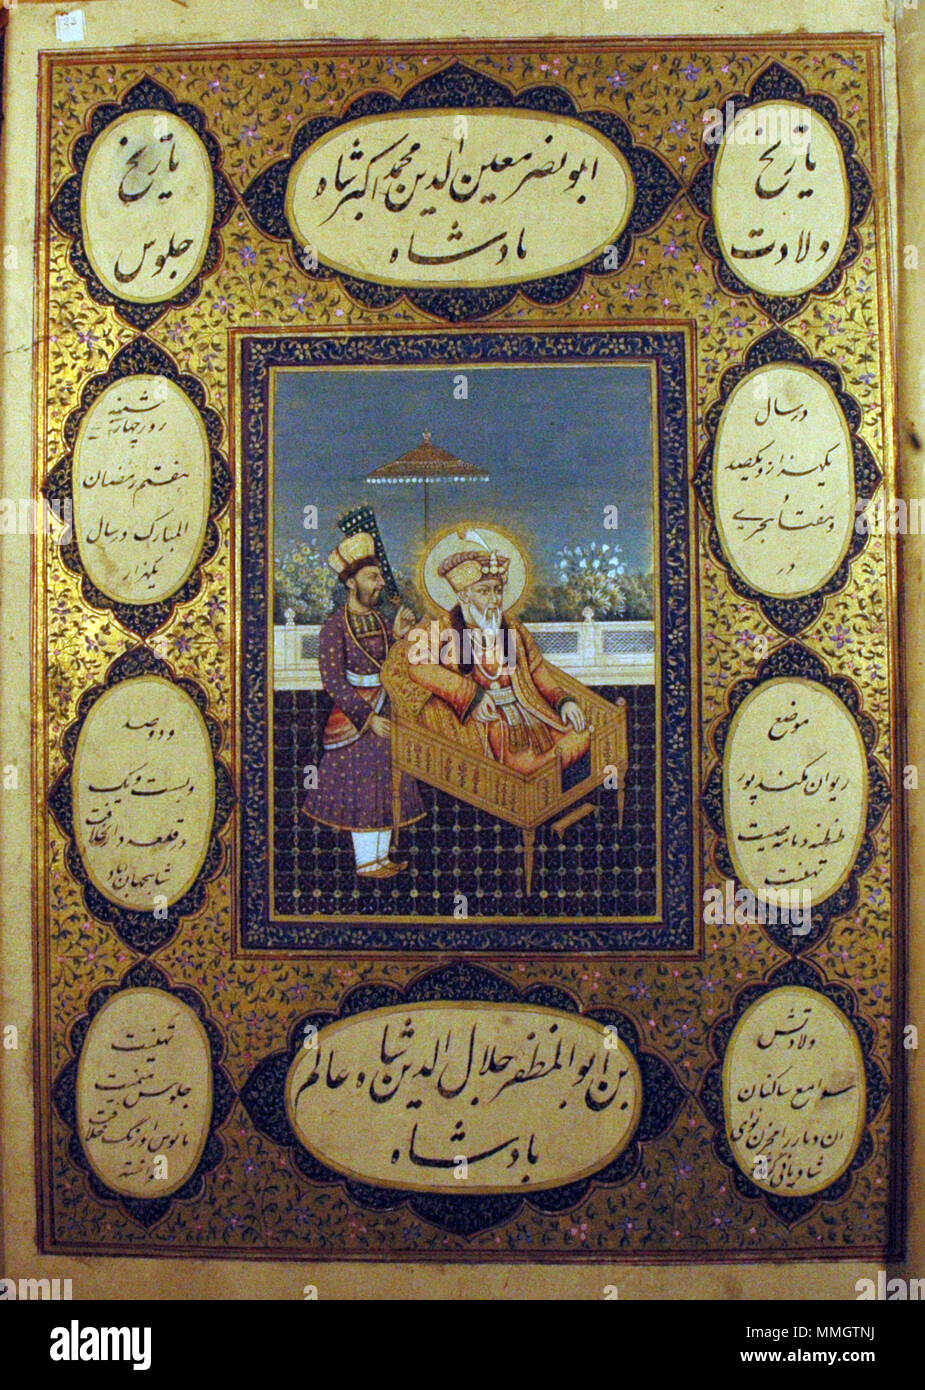 ابو نصر معین الدین محمد اکبر شاه
بادشاه
تاریخ
ولادت
در سال
یکهزار و یکصد
و
هفتاد هجری
در
موضع
ریوان مکندپور
تهنیت
ولادتش
سوامع ساکنان
تاریخ
جلوس
روز چهارشنبه
هفتم رمضان
المبارک در سال
یکهزار
و دو صد
و بیست و یک
در قلعه دار الخلافت
شاهجهان آباد
تهنیت
جلوس میمنت
مانوس اورنگ خلافت
بن ابو المظفر جلال الدین شاه عالم
بادشاه
23
a
alamy
Image ID: MMGTNJ
www.alamy.com